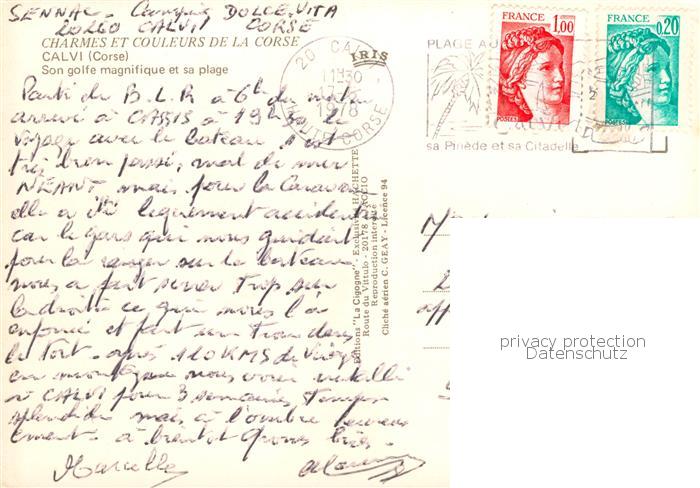 SENNAC - Camping DOLCE VITA
20260 CALVI CORSE
CHARMES ET COULEURS DE LA CORSE
IRIS
CALVI (Corse)
Son golfe magnifique et sa plage
Parti de B.L.R à 6h du matin
arrivé à CASSIS à 19h30 le
voyage avec le bateau s'est
très bien passé, mal de mer
NEANT mais pour la Caravane
elle a été légèrement accidentée
car le gars qui nous guidait
pour la ranger sur le bateau
nous a fait serrer trop sur
la droite ce qui nous l'a
enfoncé et fait un trou dans
le toit. après 120 KMS de virages
en montagne nous voici installé
à CALVI pour 3 semaines temps
splendide mais à l'ombre heureus
ement - à bientôt grosses bises -
Marcelle
20 CALVI
11H30
1978
HAUTE CORSE
PLAGE AU
sa Pinède et sa Citadelle
FRANCE
1,00
POSTES
FRANCE
0,20
POSTES
Editions "La Cigogne" - Exclusivité HACHETTE
Route du Vittulo - 20178 AJACCIO
Reproduction interdite
Cliché aérien C. GEAY - Licence 94
privacy protection
Datenschutz